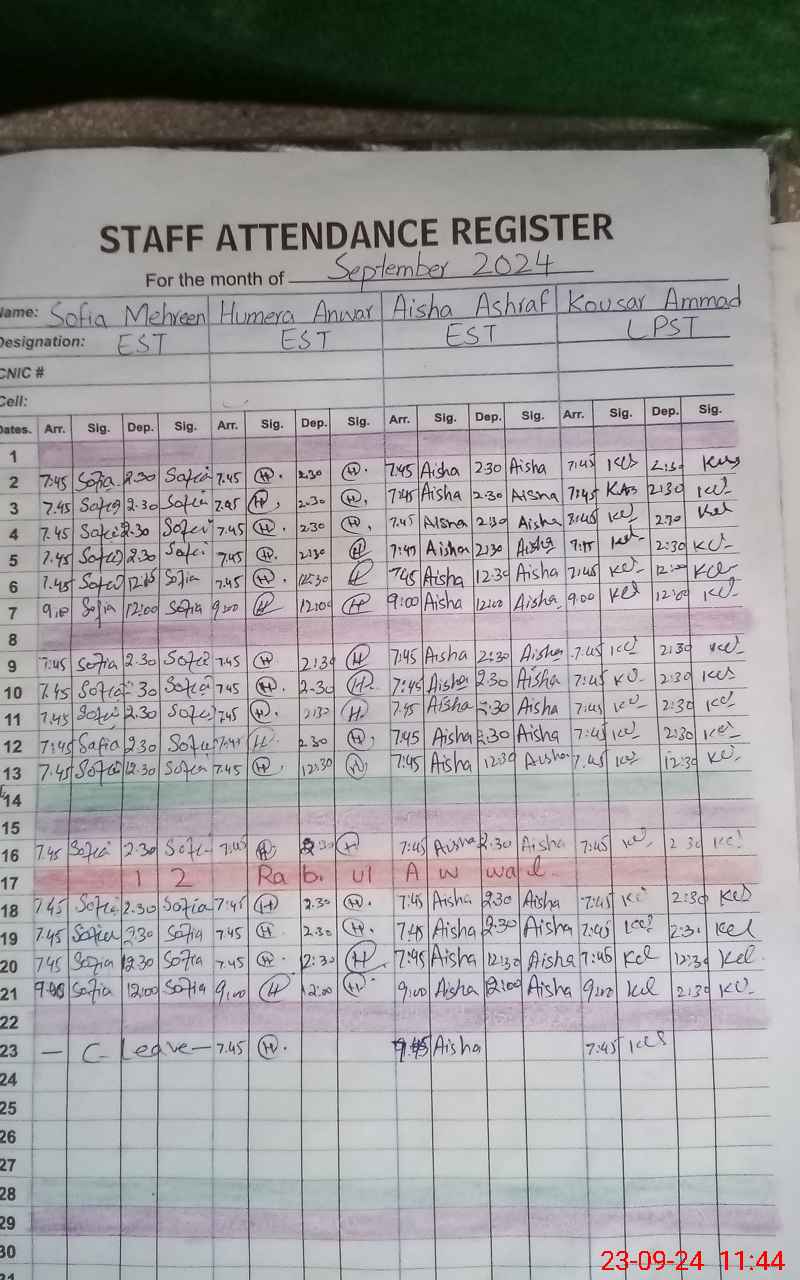 STAFF ATTENDANCE REGISTER
For the month of September 2024
Name: Sofia Mehreen Humera Anwar Aisha Ashraf Kousar Ammad
Designation: EST EST EST LPST
CNIC #
Cell:
Dates. Arr. Sig. Dep. Sig. Arr. Sig. Dep. Sig. Arr. Sig. Dep. Sig. Arr. Sig. Dep. Sig.
1
2 7:45 Sofia 2.30 Sofia 7.45 H. 2.30 H. 7:45 Aisha 2.30 Aisha 7:45 2:30
3 7.45 Sofia 2.30 Sofia 7.45 H, 2.30 H, 7:45 Aisha 2.30 Aisha 7:45 2:30
4 7.45 Sofia 2.30 Sofia 7.45 H. 2.30 H, 7.45 Aisha 2:30 Aisha
5 7.45 Sofia 2.30 Sofia 7.45 H. 2:30 H Aisha 2:30 Aisha 2:30
6 7.45 Sofia Sofia 7.45 H. 12:30 H 7:45 Aisha 12:30 Aisha 7:45
7 Sofia 12:00 Sofia 9:00 H 12:00 H 9:00 Aisha 12:00 Aisha 9.00 12:00
8
9 7:45 Sofia 2.30 Sofia 7.45 H 2:30 H 7:45 Aisha 2:30 Aisha 7:45 2:30
10 7.45 Sofia 30 Sofia 7.45 H. 2.30 H 7:45 Aisha 2.30 Aisha 7:45 2:30
11 7.45 Sofia 2.30 Sofia 7.45 H. 2:30 H 7.45 Aisha 2:30 Aisha 7:45 2:30
12 7:45 Safia 2.30 Sofia 7.45 H. 2.30 H, 7:45 Aisha 2:30 Aisha 7:45 2:30
13 7.45 Sofia 12.30 Sofia 7.45 H, 12:30 H, 7:45 Aisha 12:30 Aisha 7.45 12:30
14
15
16 7.45 Sofia 2.30 Sofia 7:45 H, 2:30 H 7:45 Aisha 2.30 Aisha 7:45 2 30
17 12 Ra b. ul A w wa l.
18 7.45 Sofia 2.30 Sofia 7:45 H 2.30 H. 7:45 Aisha 2.30 Aisha 7:45 2:30
19 7.45 Sofia 2.30 Sofia 7.45 H 2.30 H. 7:45 Aisha 2:30 Aisha 7:45 2:30
20 7.45 Sofia 12.30 Sofia 7.45 H. 12:30 H 7:45 Aisha 12:30 Aisha 7:45 12:30
21 9:00 Sofia 12:00 Sofia 9:00 H 12:00 H 9:00 Aisha 12:00 Aisha 9:00 2:30
22
23 — C- Leave — 7.45 H. Aisha 7:45
24
25
26
27
28
29
30
31
23-09-24 11:44